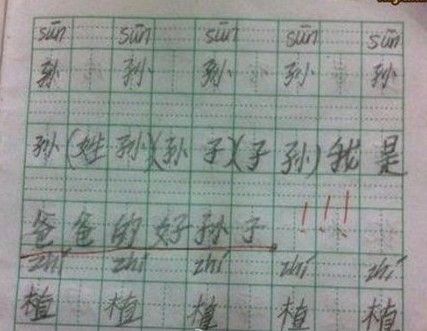 sūn sūn sūn sūn sūn
孙 孙 孙 孙 孙
孙(姓孙)(孙子)(子孙)我是
爸爸的好孙子!!!
zhí zhí zhí zhí zhí
植 植 植 植 植